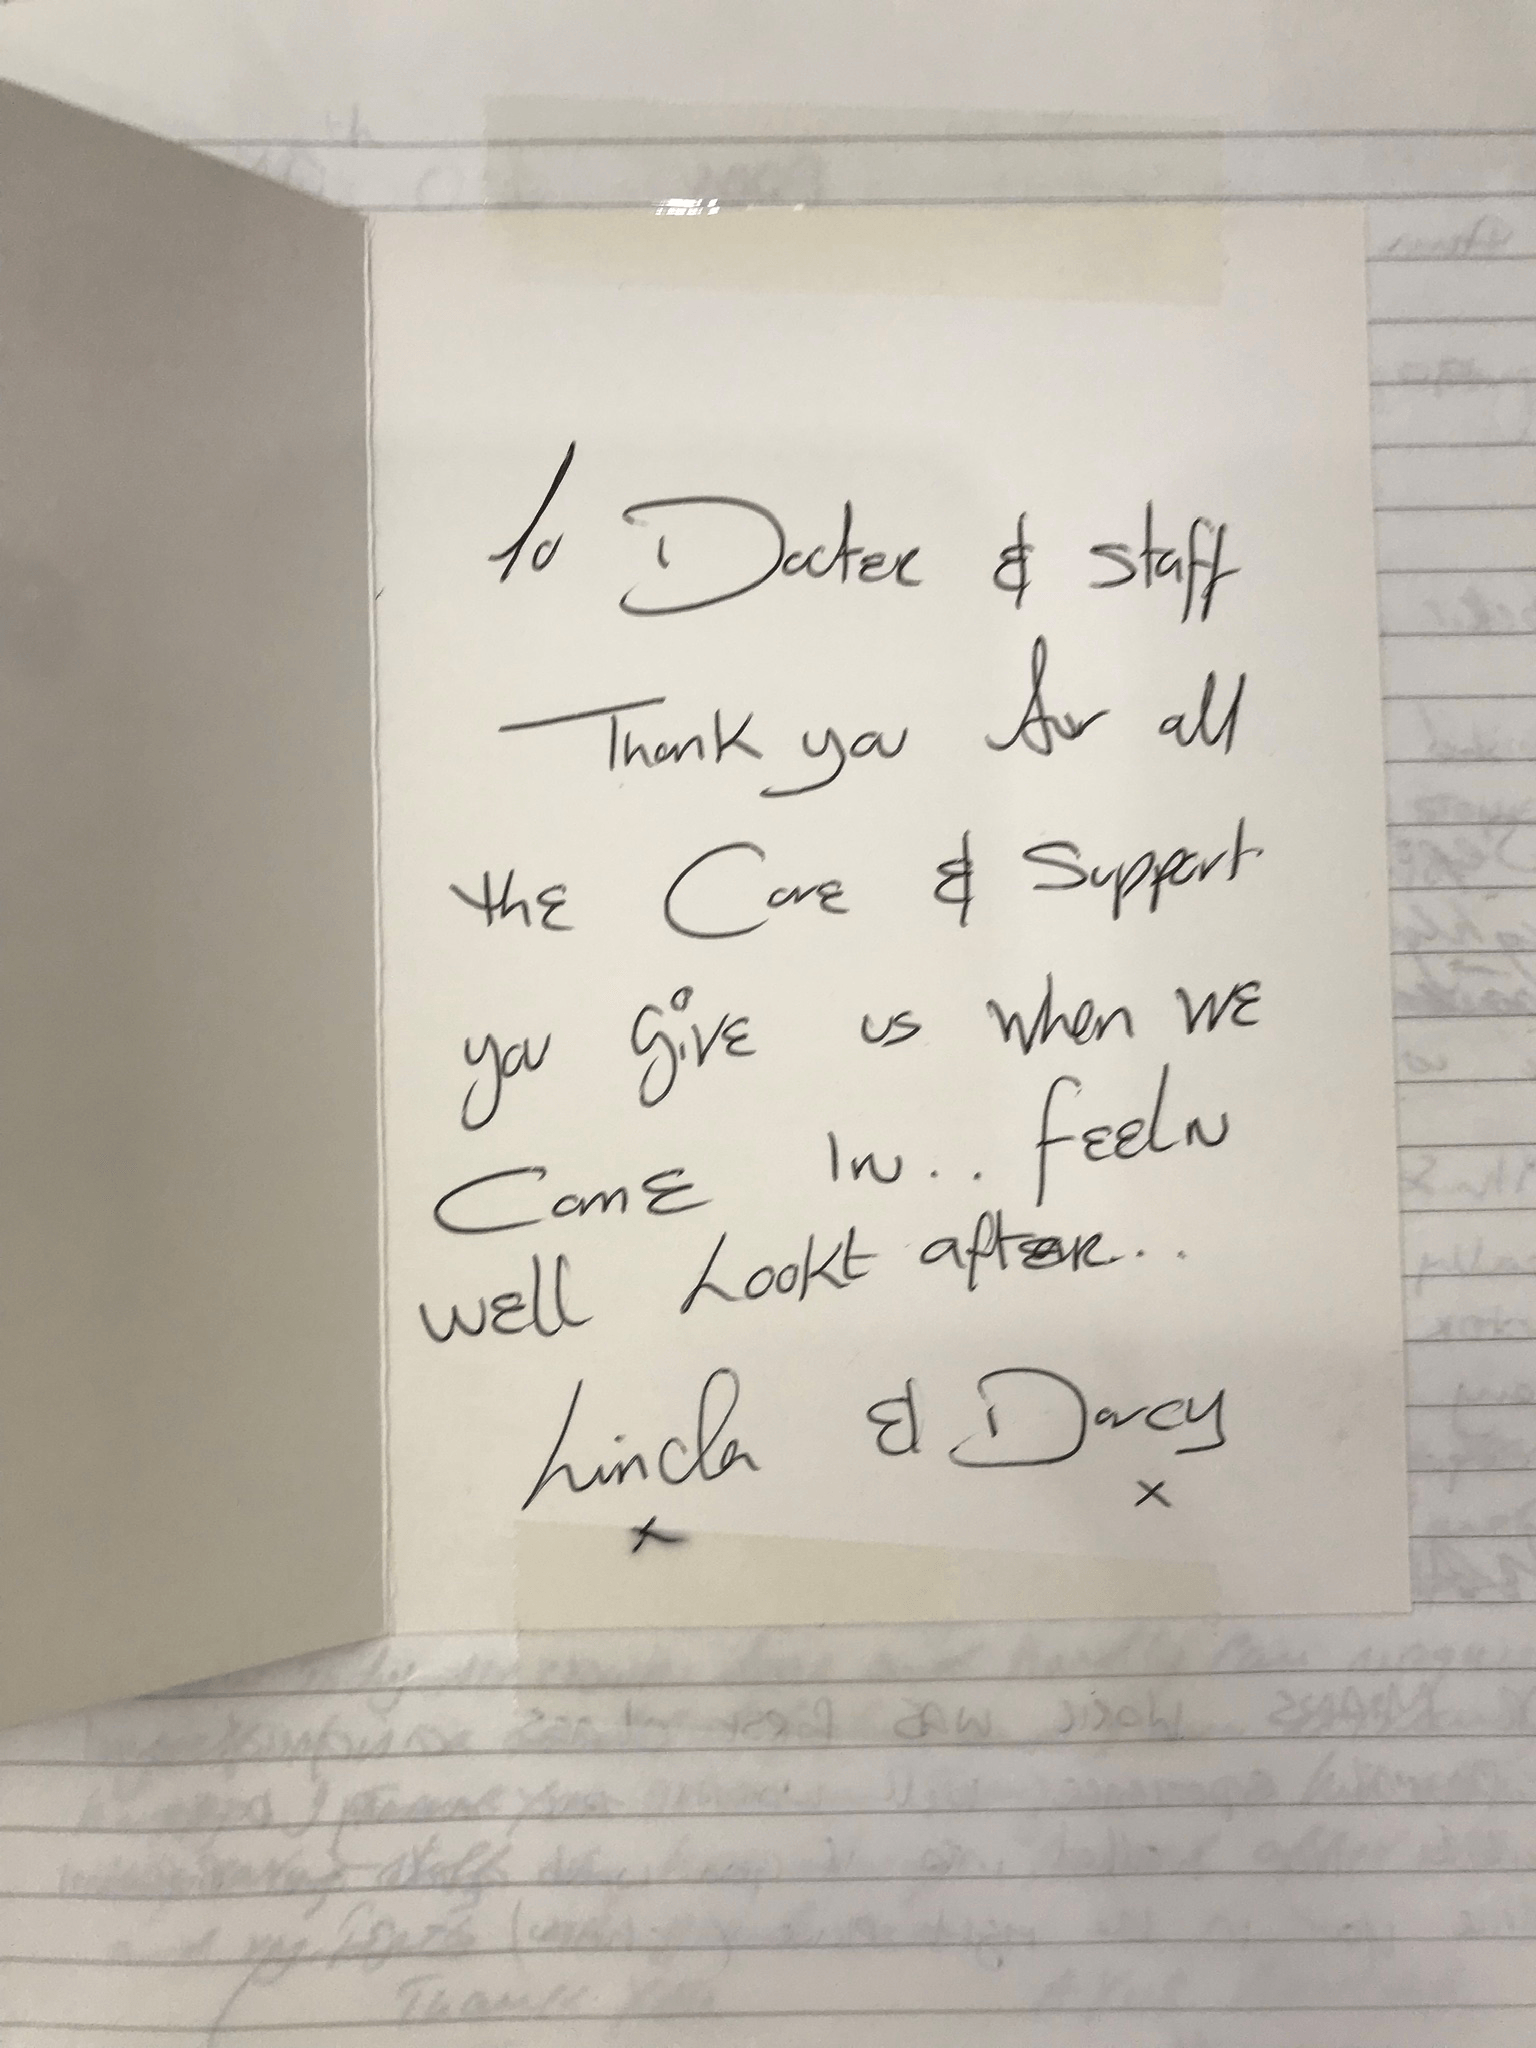 To Docter & staff
Thank you for all
the Care & Support
you give us when we
Come in.. feeln
well Lookt after...
Linda & Darcy
x x